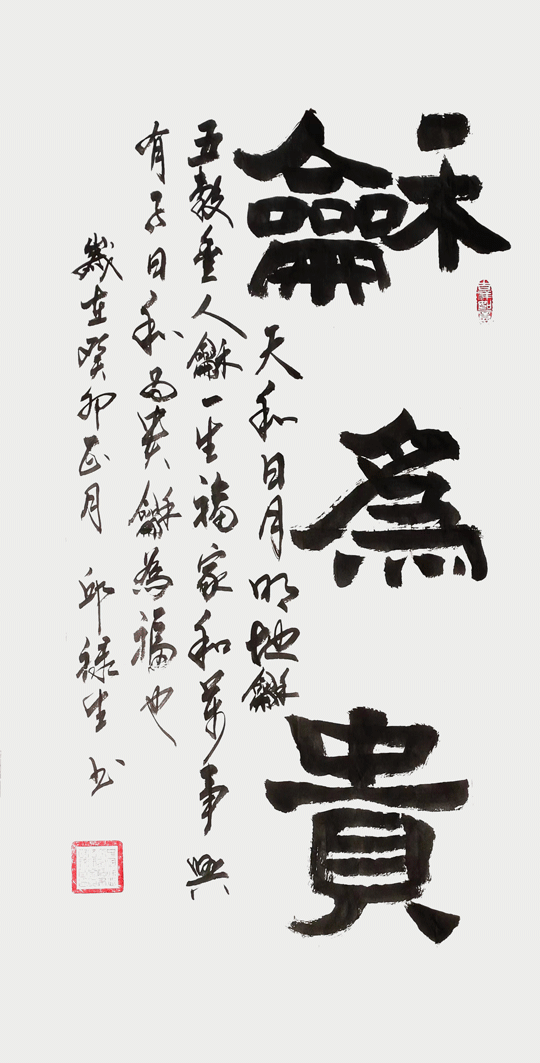 龢為貴
天和日月明地龢
五穀垂人龢一生福家和萬事興
有子曰和為貴龢為福也
歲在癸卯正月 邱祿生 书